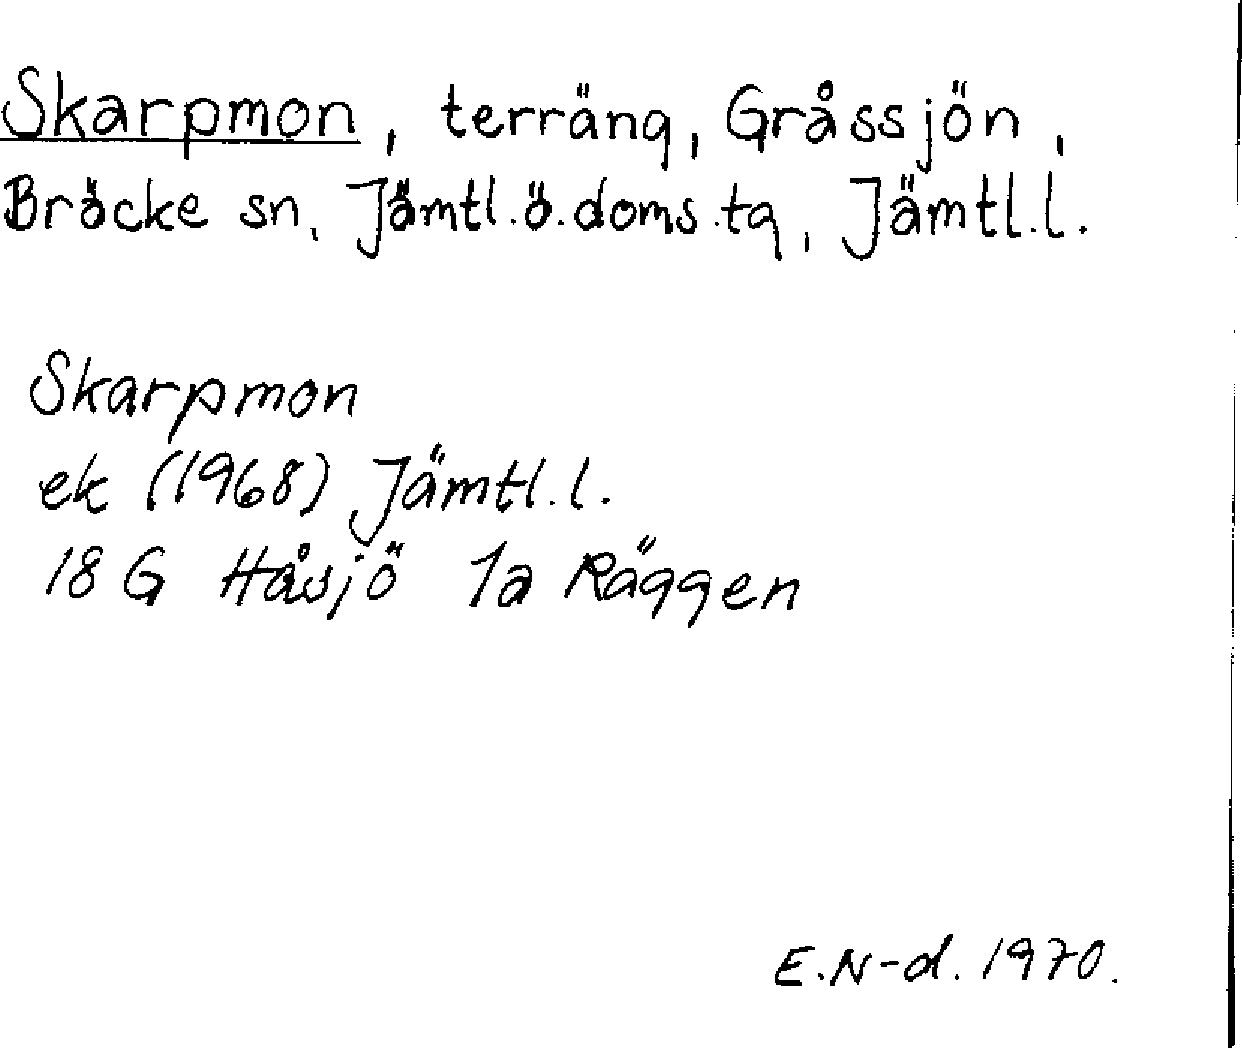 Skarpmon, terräng, Gråssjön,
Bräcke sn, Jämtl.ö.doms.tg, Jämtl.l.
Skarpmon
ek (1968) Jämtl.l.
18 G Håsjö 1a Räggen
E.N-d. 1970.